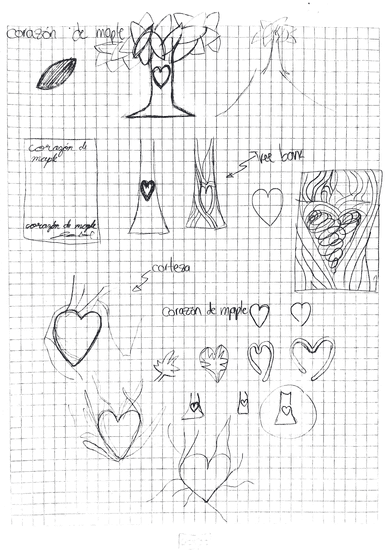 corazón de maple
corazón de
maple
corazón de maple
tree bark
corteza
corazón de maple